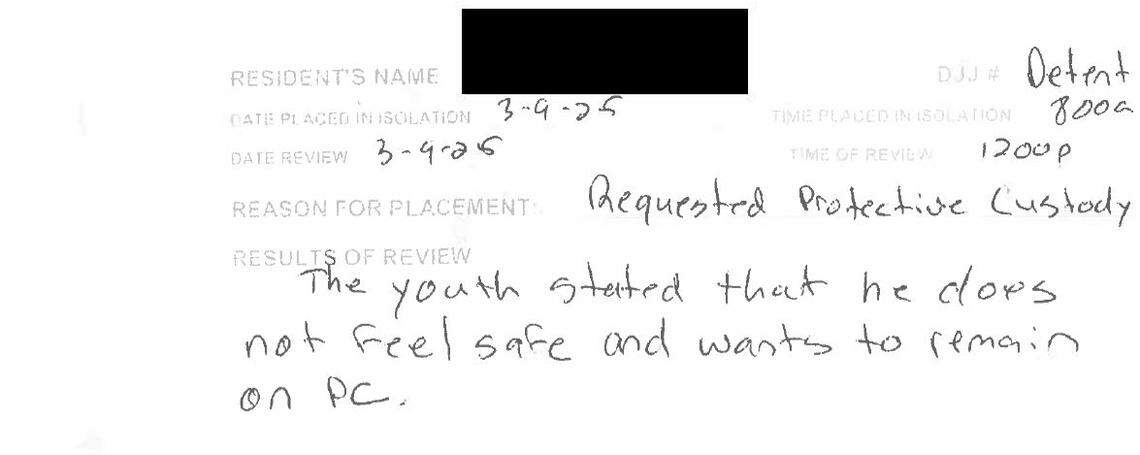 RESIDENT'S NAME DJJ # Detent
DATE PLACED IN ISOLATION 3-9-25 TIME PLACED IN ISOLATION 800a
DATE REVIEW 3-9-25 TIME OF REVIEW 1200p
REASON FOR PLACEMENT: Requested Protective Custody
RESULTS OF REVIEW
The youth stated that he does
not feel safe and wants to remain
on PC.